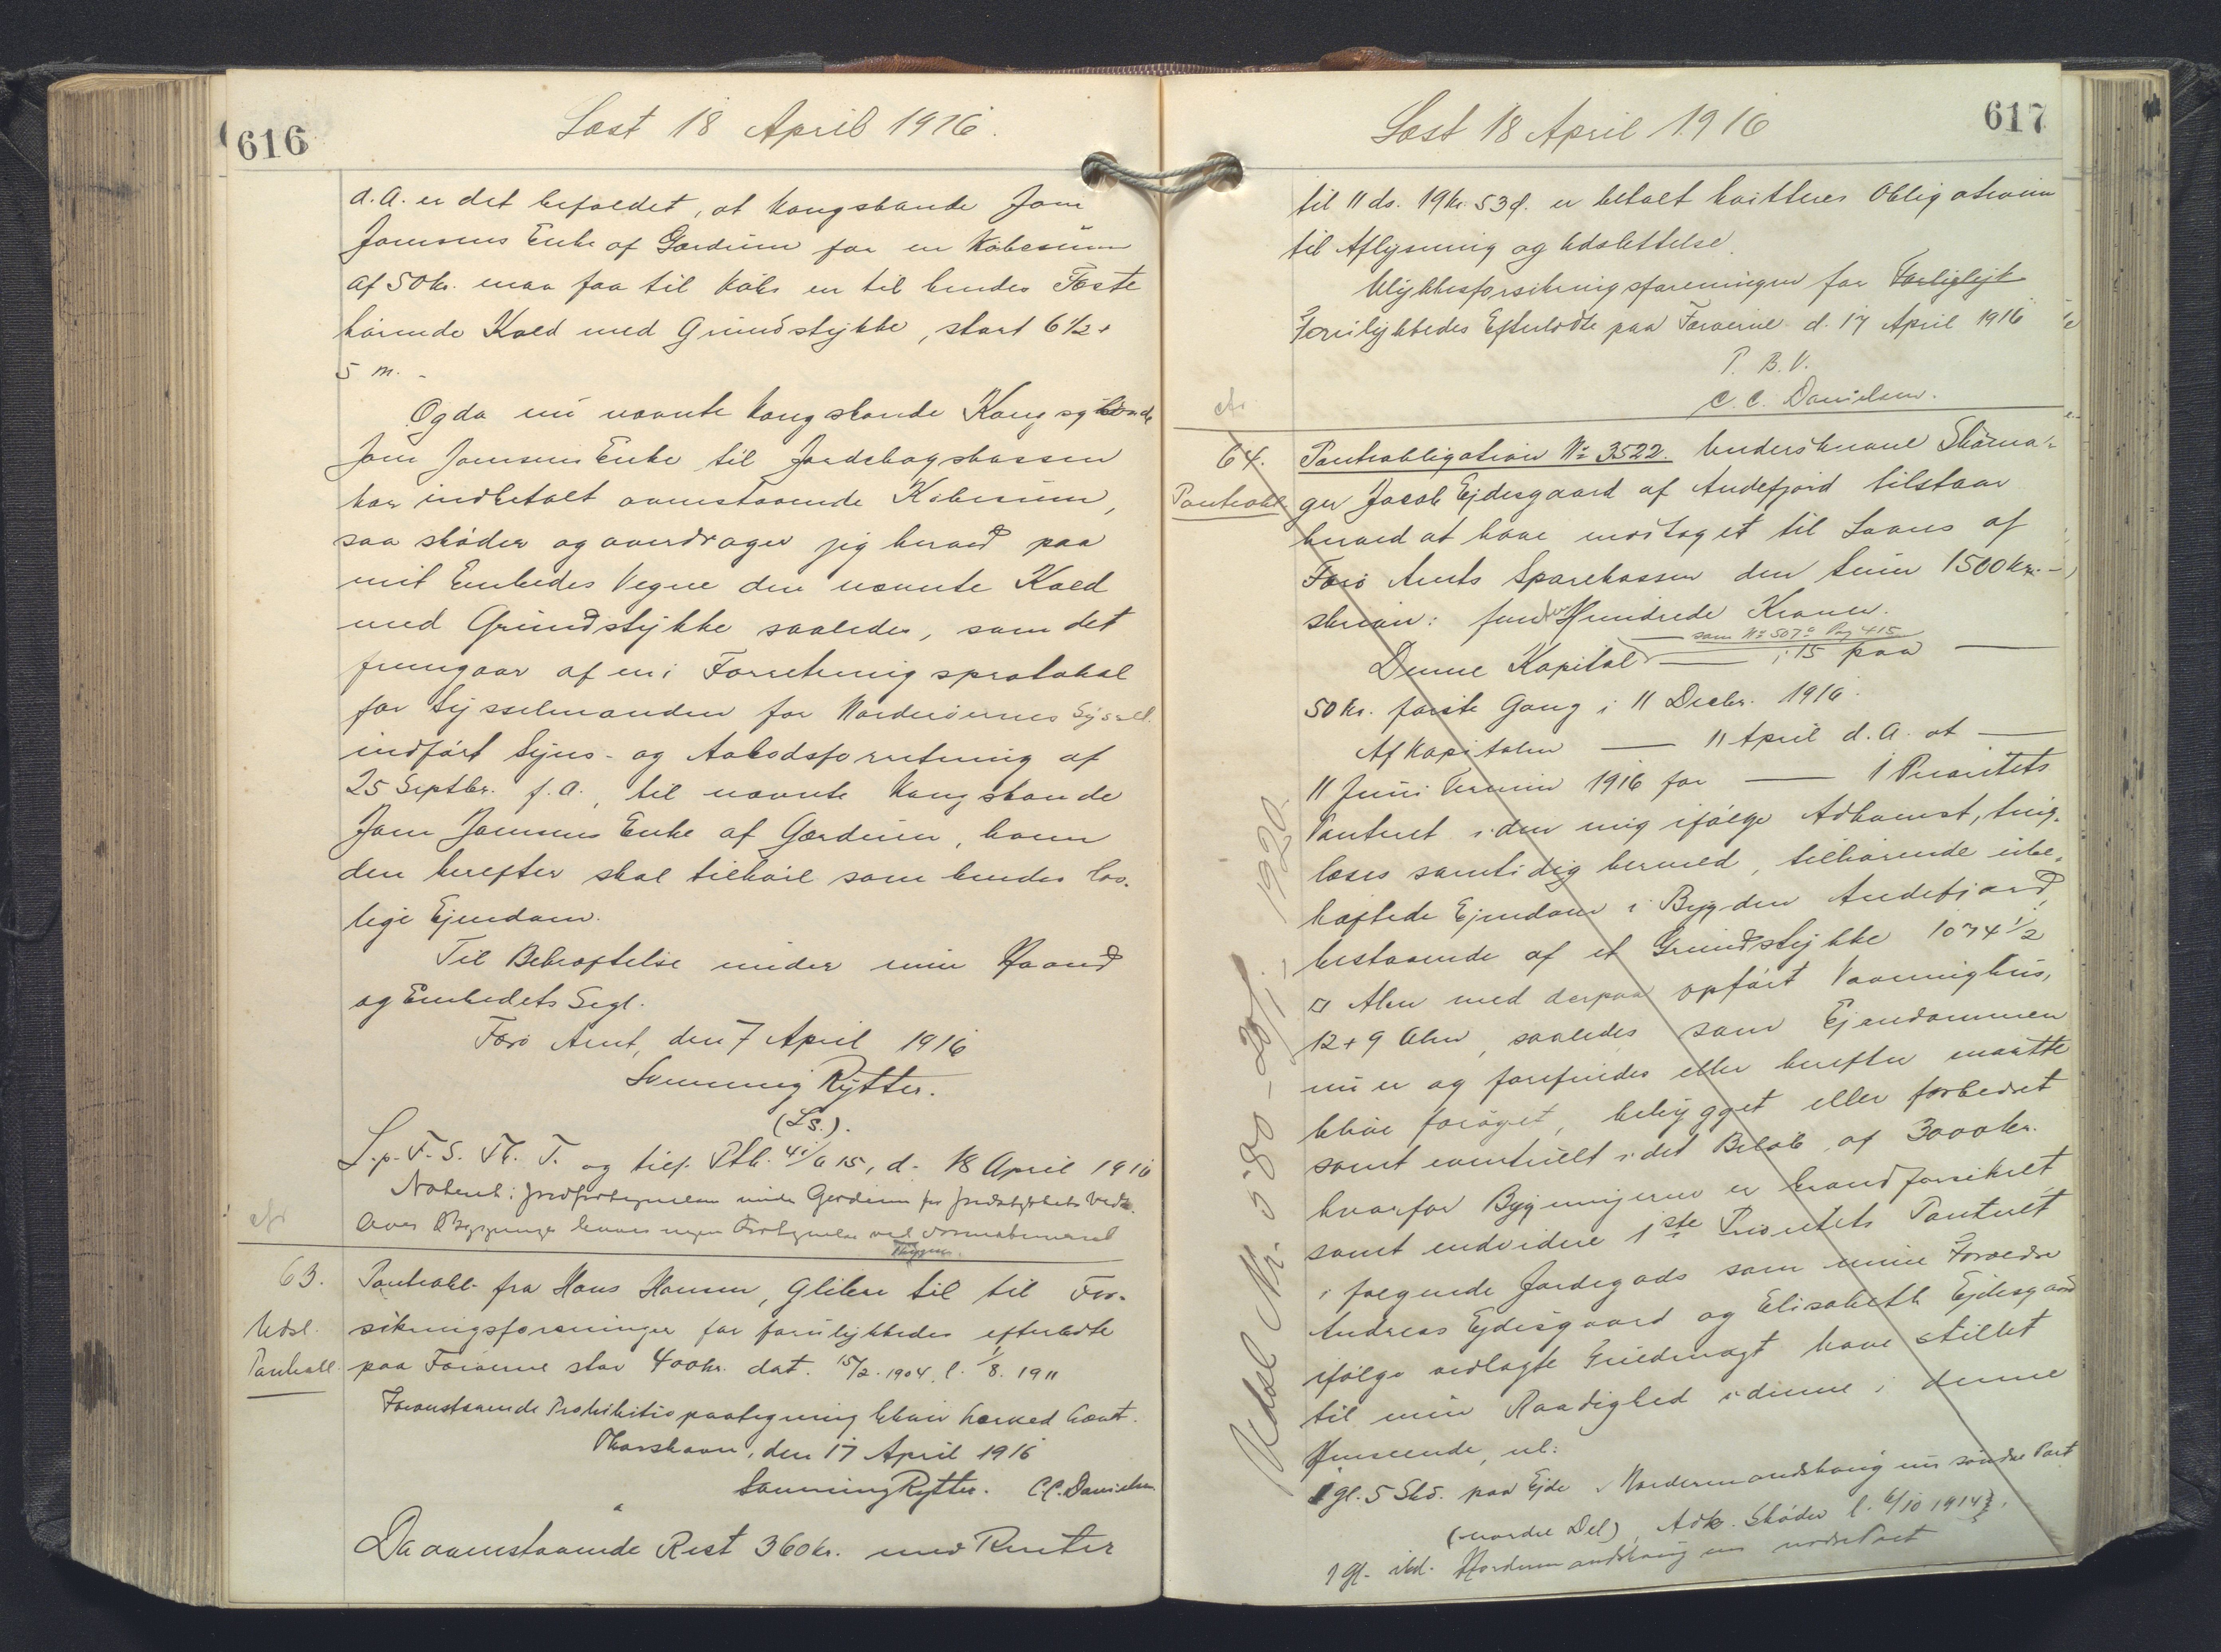 616
Læst 18 April 1916.
d. A. er det befaldet, at Kongsbonde Joen
Joensens Enke af Gærdum for en Købesum
af 50 kr. maa faa til købs en til hendes Fæste
hørende Kald med Grundstykke, stort 6½ ×
5 m. -
Og da nu nævnte Kongsbonde
Joen Joensens Enke til Jordebogskassen
har indbetalt ovenstaaende Købesum,
saa skøder og overdrager jeg herved paa
mit Embedes Vegne den nævnte Kald
med Grundstykke saaledes, som det
fremgaar af en i Forretningsprotokol
for Sysselmanden for Norderøernes Syssel
indført Syns- og Aabodsforretning af
25 Septbr. f. A., til nævnte Kongsbonde
Joen Joensens Enke af Gærdum, hvem
den herefter skal tilhøre som hendes lov-
lige Ejendom.
Til Bekræftelse under min Haand
og Embedets Segl.
Færø Amt, den 7 April 1916
Svenning Rytter.
(L.S.).
L. p. F. S. Th. T. og tilf. Ptb. 4 1/a 15, d. 18 April 1916
63.
Udsl.
Pantobl.
Pantobl. fra Hans Hansen, Glibre til til For-
sikringsforeninger for forulykkedes efterladte
paa Færøerne stor 400 kr. dat. 15/2. 1904. l. 1/8. 1911
Foranstaaende Prohibitivpaategning bliver herved hævet.
Thorshavn, den 17 April 1916
Svenning Rytter. C.C. Danielsen.
Da ovenstaaende Rest 360 kr. med Renter
617
Læst 18 April 1916
til 11 ds. 19 kr. 53 Ø. er betalt kvitteres Obligationen
til Aflysning og Udslettelse.
Ulykkesforsikringsforeningen for
Forulykkedes Efterladte paa Færøerne d. 17 April 1916
P. B. V.
C. C. Danielsen.
64.
Pantobl.
Pantobligation No 3522. Underskrevne Skoma-
ger Jacob Ejdesgaard af Andefjord tilstaar
herved at have modtaget til Laans af
Færø Amts Sparekasse den Sum 1500 kr. -
skriver: femten Hundrede Kroner.
som No 507a Pag 415
Denne Kapital — i 15 paa —
50 kr. første Gang i 11 Decbr. 1916.
Af Kapitalen — 11 April d. A. at —
11 Juni Termin 1916 for — 1 Prioritets
Panteret i den mig ifølge Adkomst, ting-
læses samtidig hermed, tilhørende ube-
hæftede Ejendom i Bygden Andefjord,
bestaaende af et Grundstykke 1074 ½
□ Alen med derpaa opført Vaaningshus,
12 × 9 Alen, saaledes som Ejendommen
nu er og forefindes eller herefter maatte
blive forøget, bebygget eller forbedret
samt eventuelt i det Beløb af 3000 kr.
hvorfor Bygningerne er brandforsikret,
samt endvidere 1ste Prioritets Panteret
i følgende Jordegods som mine Forældre
Andreas Ejdesgaard og Elisabeth Ejdesgaard
ifølge vedlagte Fuldmagt have stillet
til min Raadighed i denne i denne
Henseende, nl:
1 gl. 5 Skd. paa Ejde i Nordermandshaug um søndre Part
(nordre Del), Adk. Skøder l. 6/10 1914.
1 gl. ibd. Nordermandshaug um nordre Part
Udsl Nr. 580 - 20/1 - 1920.